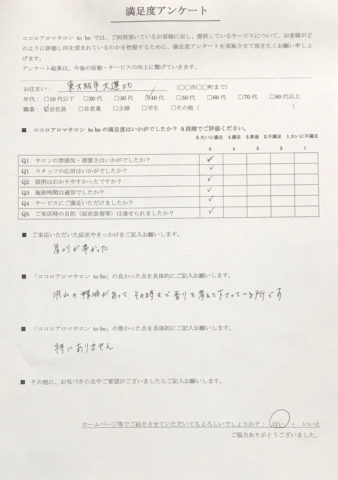 満足度アンケート
ココロアロマサロン to be では、ご利用頂いているお客様に対し、提供しているサービスについて、お客様がど
のように評価し何を望まれているのかを把握するために、満足度アンケートを実施させて頂きたくお願い申し上
げます。
アンケート結果は、今後の活動・サービスの向上に繋げていきます。
お住まい： 東大阪市大蓮北 (〇〇市〇〇町まで)
年代： □10代以下 □20代 □30代 ☑40代 □50代 □60代 □70代 □80代 □90代以上
職業： ☑会社員 □自営業 □主婦 □学生 □その他（ ）
■ ココロアロマサロン to be の満足度はいかがでしたか？ 5段階でご評価ください。
5.大いに満足 4.満足 3.普通 2.不満足 1.大いに不満足
5 4 3 2 1
Q1 サロンの雰囲気・清潔さはいかがでしたか？ ✓
Q1 スタッフの応対はいかがでしたか？ ✓
Q2 説明はわかりやすかったですか？ ✓
Q3 施術時間は適切でしたか？ ✓
Q4 サービスにご満足いただけましたか？ ✓
Q5 ご来店時の目的（症状改善等）は達せられましたか？ ✓
■ ご来店いただいた症状やきっかけをご記入お願いします。
肩こりが辛かった
■ 「ココロアロマサロン to be」の良かった点を具体的にご記入お願いします。
沢山の精油があって、その時々で香りを考えて下さっている所です
■ 「ココロアロマサロン to be」の悪かった点を具体的にご記入お願いします。
特にありません
■ その他に、お気づきの点やご要望がございましたらご記入お願いします。
ホームページ等でご紹介させていただいてもよろしいでしょうか？： はい ・ いいえ
ご協力ありがとうございました。